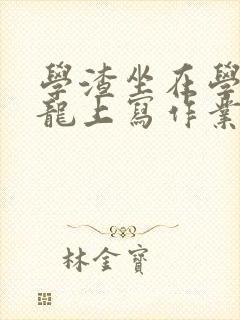 學渣坐在學
龍上寫作業
林金寶